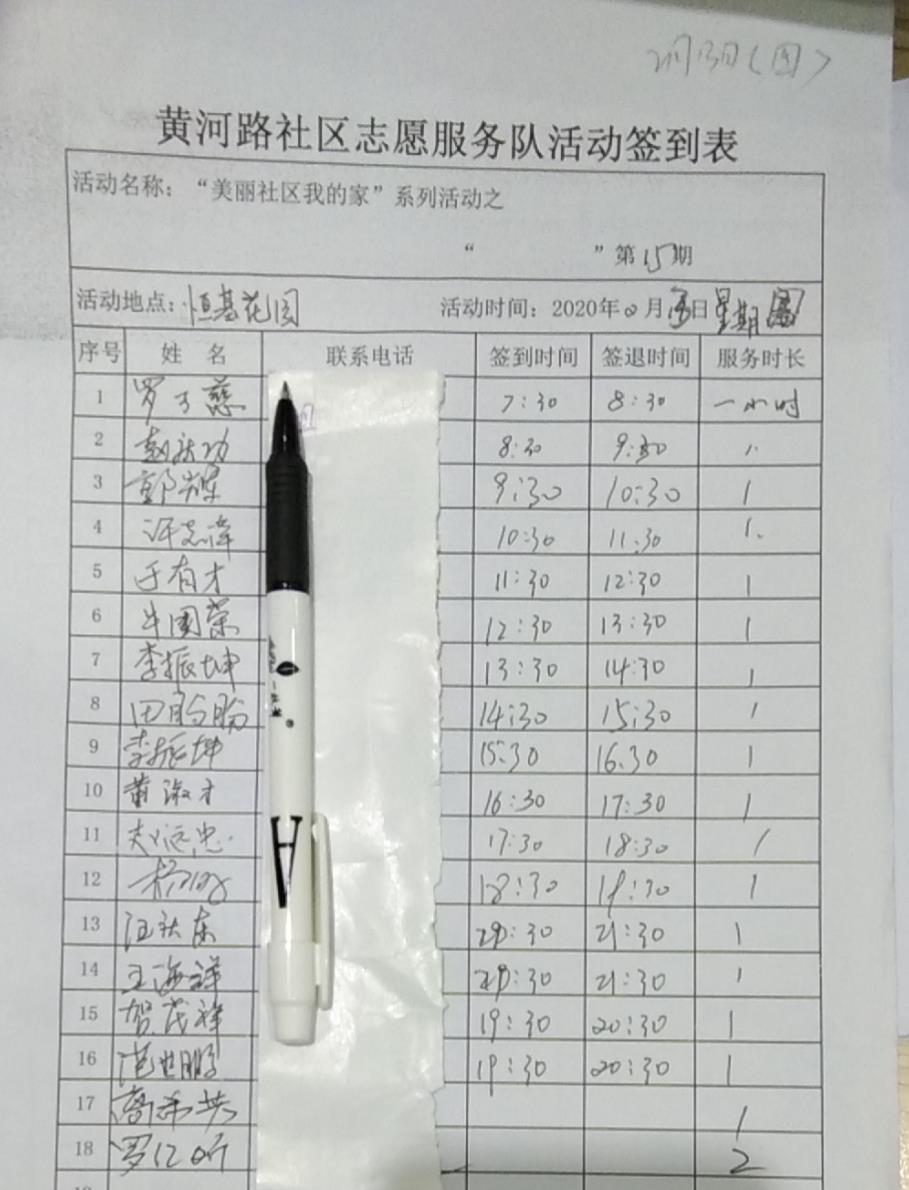 2月13日（四）
黄河路社区志愿服务队活动签到表
活动名称：“美丽社区我的家”系列活动之
“ ”第15期
活动地点：恒基花园 活动时间：2020年2月 日 星期四
序号 姓 名 联系电话 签到时间 签退时间 服务时长
1 7:30 8:30 一小时
2 8:30 9:30 1.
3 郭辉 9:30 10:30 1
4 许志峰 10:30 11:30 1.
5 于有才 11:30 12:30 1
6 牛国荣 12:30 13:30 1
7 李振坤 13:30 14:30 1
8 田盼盼 14:30 15:30 1
9 李振坤 15:30 16:30 1
10 黄淑才 16:30 17:30 1
11 赵远忠 17:30 18:30 1
12 18:30 19:30 1
13 汪秋东 20:30 21:30 1
14 王海祥 20:30 21:30 1
15 贺茂祥 19:30 20:30 1
16 范世鹏 19:30 20:30 1
17 1
18 2
A